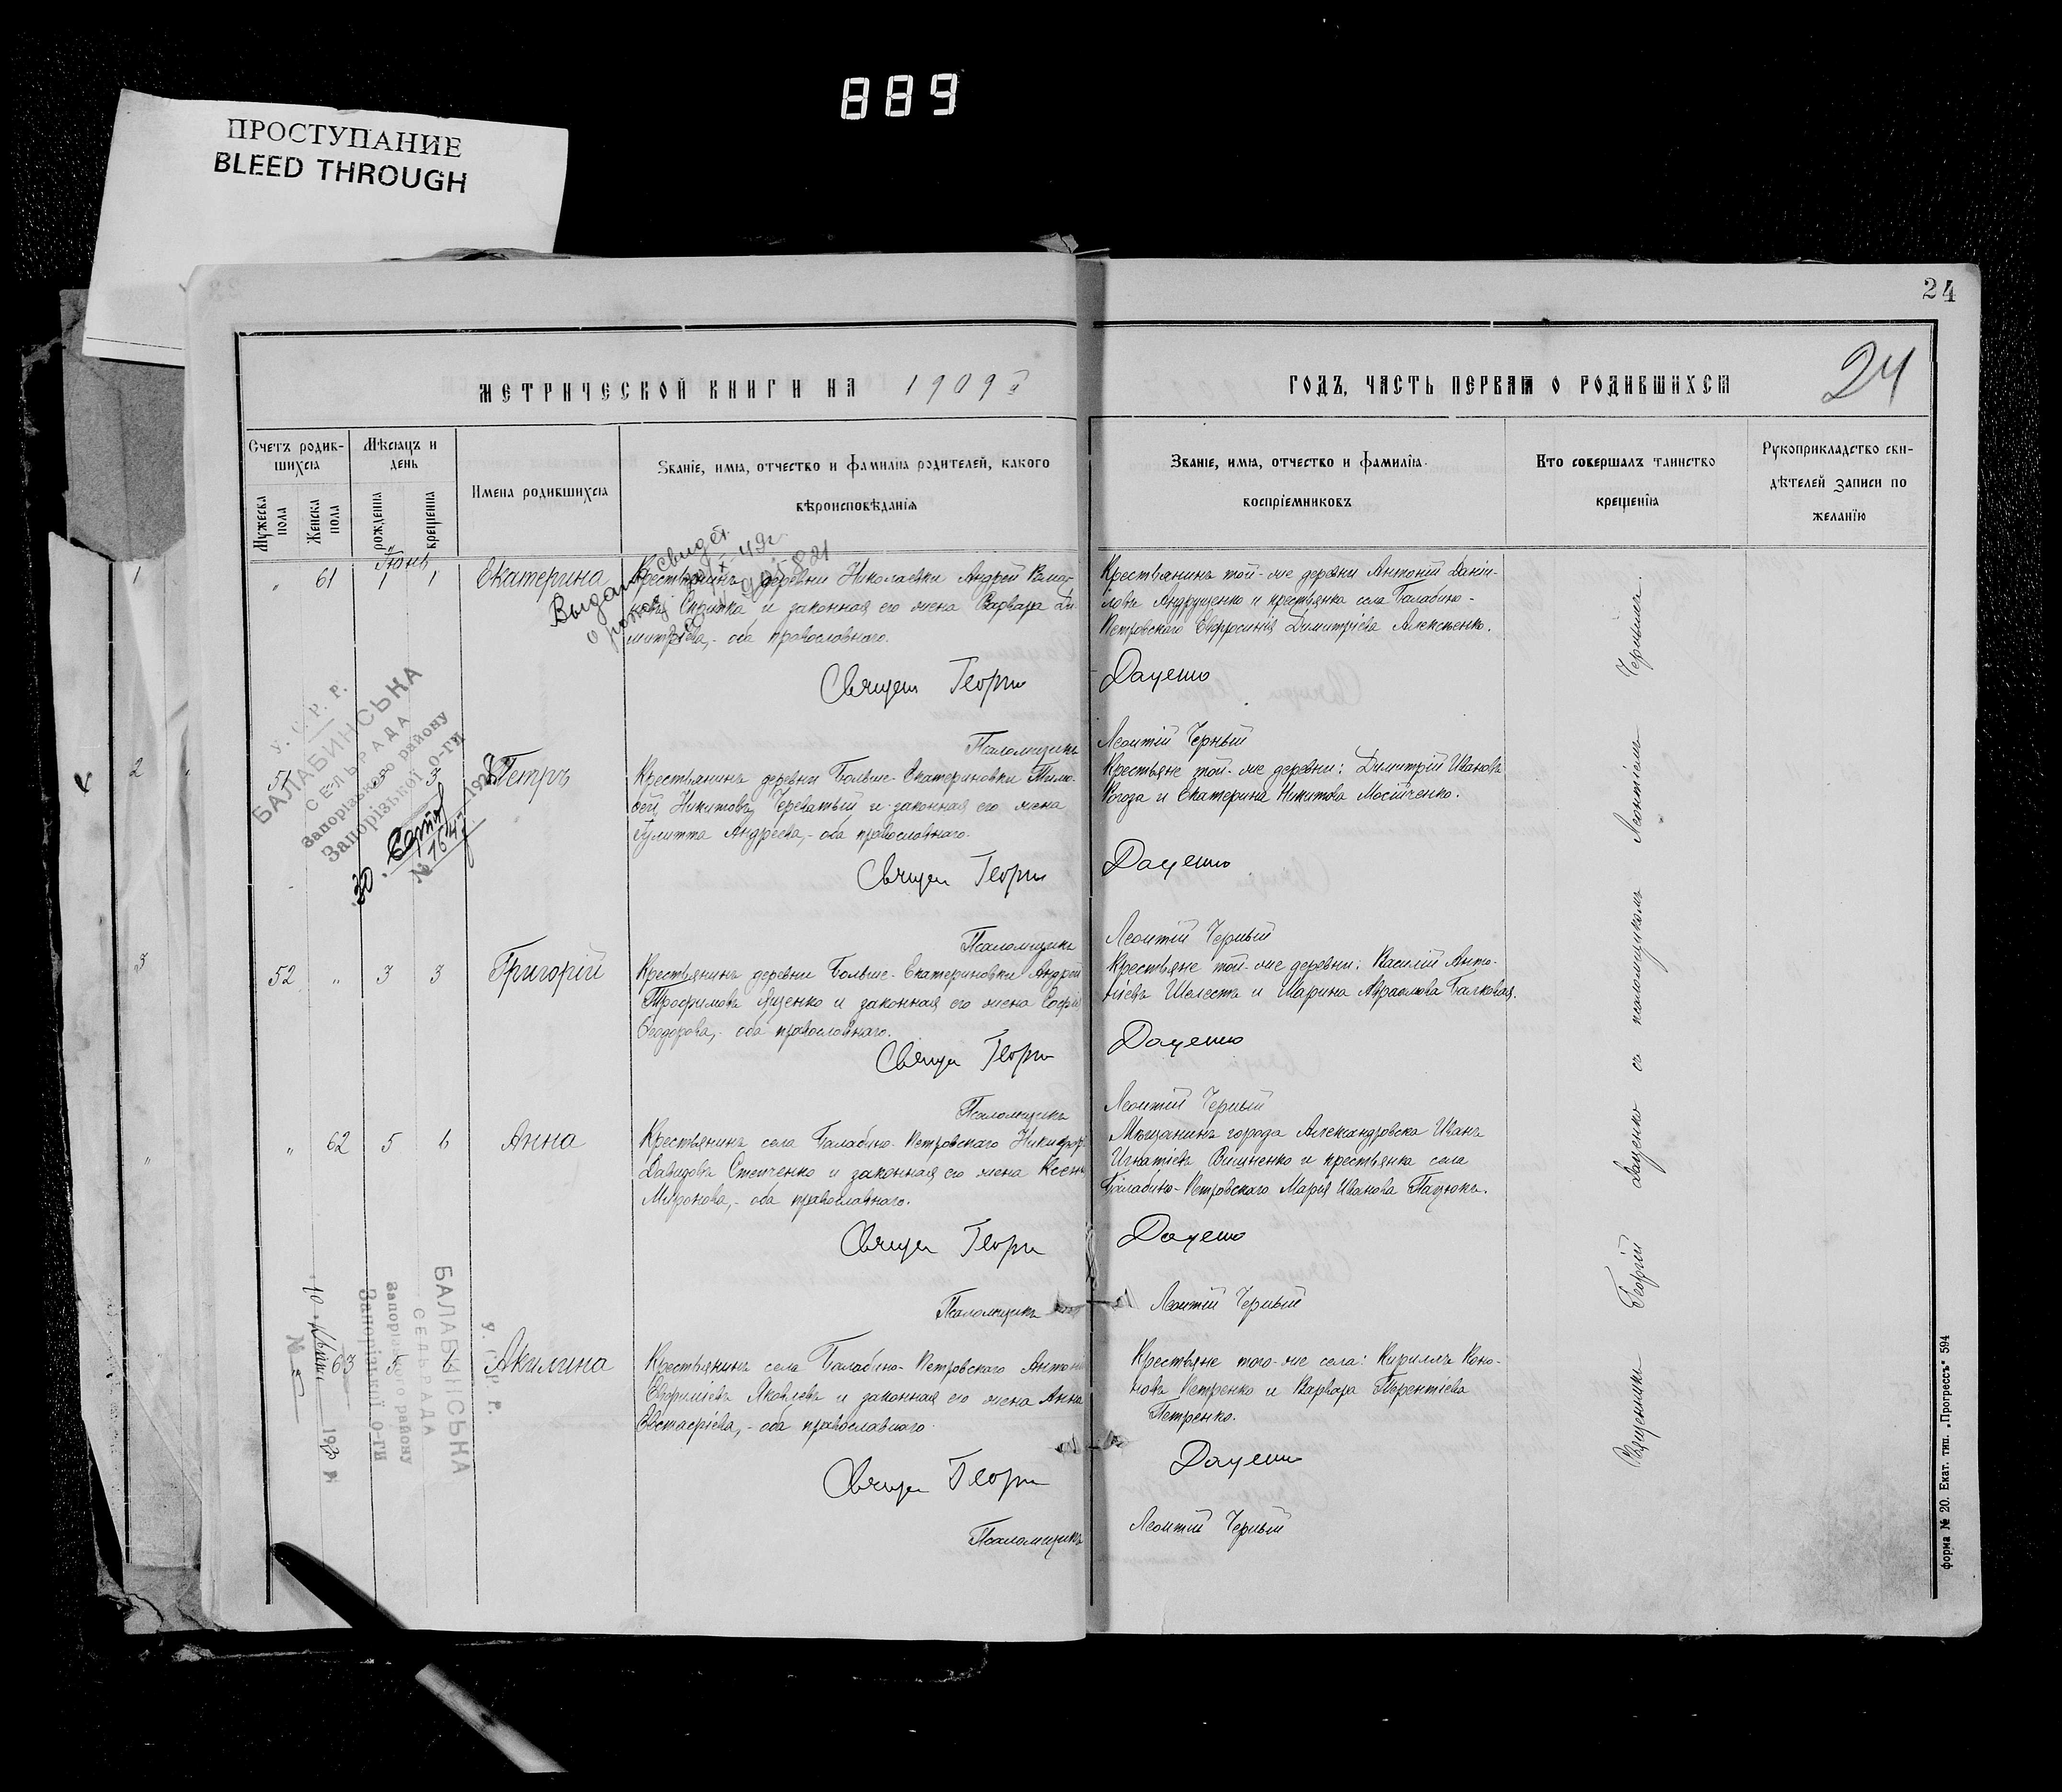 889
ПРОСТУПАНИЕ
BLEED THROUGH
24
МЕТРИЧЕСКОЙ КНИГИ НА 1909й
ГОДЪ, ЧАСТЬ ПЕРВАЯ О РОДИВШИХСЯ
24
Счетъ родив-
шихся
Мѣсяцъ и
день
Имена родившихся
Званіе, имя, отчество и фамилія родителей, какого
вѣроисповѣданія
Званіе, имя, отчество и фамилія
воспріемниковъ
Кто совершалъ таинство
крещенія
Рукоприкладство сви-
дѣтелей записи по
желанію
Мужеска
пола
Женска
пола
рожденія
крещенія
Іюнь
1
„ 61 1 1 Екатерина
Крестьянинъ деревни Николаевки Андрей
и законная его жена Варвара Ди-
митріева, - оба православнаго.
Крестьянинъ той-же деревни Антоній Даніи-
ловъ Андрущенко и крестьянка села Балабино-
Петровскаго Евфросинія Димитріева Алексѣенко.
Выдано свидет.
о рожд.
Священ Георгій Даценко
Псаломщикъ Леонтій Черный
У. С. Р. Р.
БАЛАБИНСЬКА
СЕЛЬРАДА
Запорізького району
Запорізької о-ги
30
2
51 3 Петръ
Крестьянинъ деревни Больше-Екатериновки Тимо-
фей Никитовъ Череватый и законная его жена
Іулитта Андреева, - оба православнаго.
Крестьяне той-же деревни: Димитрій Ивановъ
Рогоза и Екатерина Никитова Мосійченко.
Священ Георгій Даценко
Псаломщикъ Леонтій Черный
3
52 „ 3 3 Григорій
Крестьянинъ деревни Больше-Екатериновки Андрей
Трофимовъ Лизенко и законная его жена Софія
Ѳеодорова, - оба православнаго.
Крестьяне той-же деревни: Василій Анто-
ніевъ Шелестъ и Марина Авраамова Балковая.
Священ Георгій Даценко
Псаломщикъ Леонтій Черный
„ 62 5 6 Анна
Крестьянинъ села Балабино-Петровскаго Никифоръ
Давидовъ Степченко и законная его жена Ксенія
Миронова, - оба православнаго.
Мѣщанинъ города Александровска Иванъ
Игнатіевъ Вишненко и крестьянка села
Балабино-Петровскаго Марія Иванова Пацюкъ.
Священ Георгій Даценко
Псаломщикъ Леонтій Черный
У. С. Р. Р.
БАЛАБИНСЬКА
СЕЛЬРАДА
Запорізького району
Запорізької о-ги
63 5 6 Акилина
Крестьянинъ села Балабино-Петровскаго Антоній
Евфиміевъ Яковлевъ и законная его жена Анна
Евстафіева, - оба православнаго.
Крестьяне того-же села: Кириллъ Коно-
новъ Петренко и Варвара Терентіева
Петренко.
Священ Георгій Даценко
Псаломщикъ Леонтій Черный
Священникъ Георгій Даценко съ псаломщикомъ Леонтіемъ Чернымъ.
форма № 20. Екат. тип. „Прогрессъ“ 594